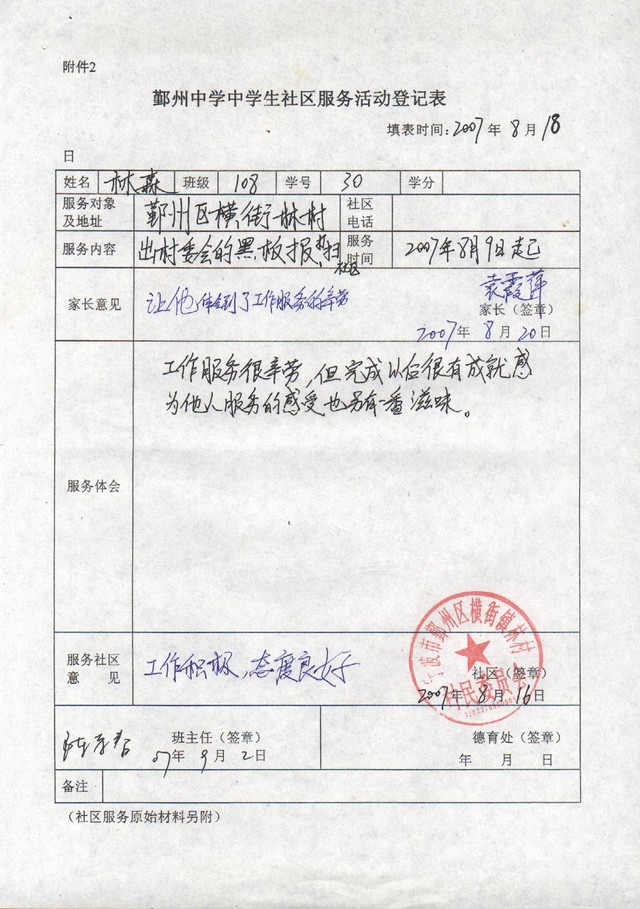 附件2
鄞州中学中学生社区服务活动登记表
填表时间:2007年8月18
日
姓名 林森 班级 108 学号 30 学分
服务对象及地址 鄞州区横街林村 社区电话
服务内容 出村委会的黑板报、打扫社区 服务时间 2007年8月9日起
家长意见 让他体会到了工作服务的辛劳
袁霞萍
家长(签章)
2007年8月20日
服务体会
工作服务很辛劳,但完成以后很有成就感
为他人服务的感受也另有一番滋味。
服务社区意见 工作积极,态度良好
宁波市鄞州区横街镇林村
村民委员会
社区(签章)
2007年8月16日
班主任(签章)
07年9月2日
德育处(签章)
年 月 日
备注
(社区服务原始材料另附)